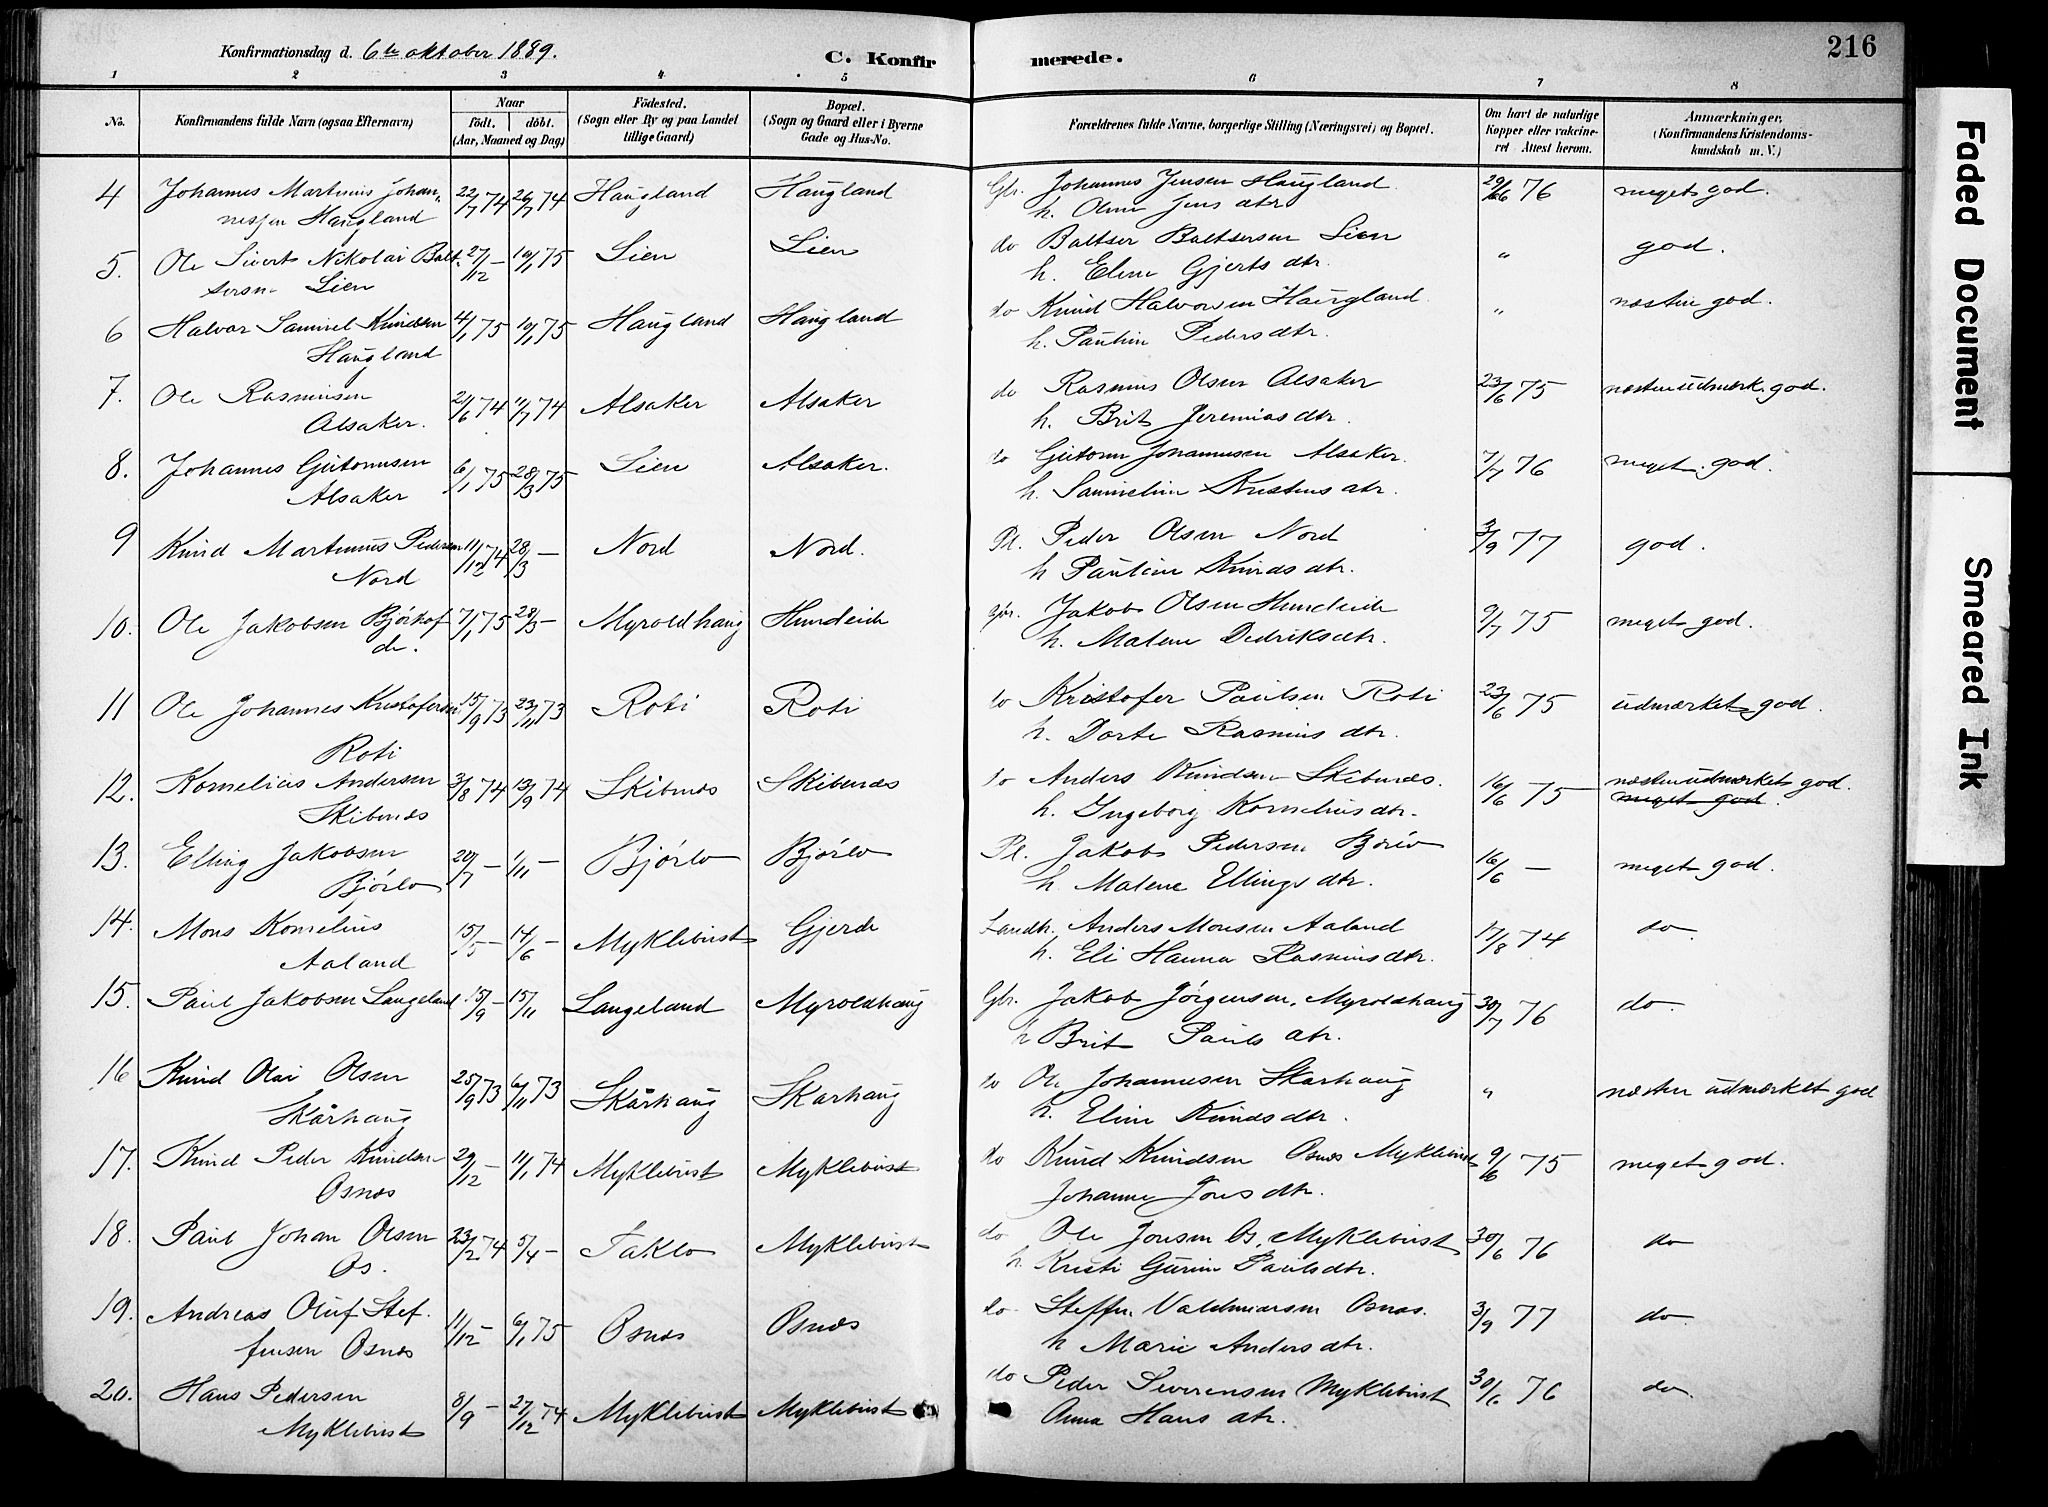 Konfirmationsdag d. 6te oktober 1889.
C. Konfirmerede.
216
1 2 3 4 5 6 7 8
No.
Konfirmandens fulde Navn (ogsaa Efternavn)
Naar
födt. döbt.
(Aar, Maaned og Dag)
Födested.
(Sogn eller By og paa Landet
tillige Gaard)
Bopæl.
(Sogn og Gaard eller i Byerne
Gade og Hus-No.
Forældrenes fulde Navne, borgerlige Stilling (Næringsvei) og Bopæl.
Om havt de naturlige
Kopper eller vakcine-
ret Attest herom.
Anmærkninger.
(Konfirmandens Kristendoms-
kundskab m. V.)
4 Johannes Martinus Johan- 22/7 74 26/7 74 Haugland Haugland Gbr. Johannes Jensen Haugland 76 meget god.
nessen Haugland h. Oline Jens dtr
5. Ole Sivert Nikolai Balt- 27/12 – 10/1 75 Lien Lien do Baltser Baltsersen Lien " god.
sersn. Lien h. Eline Gjerts dtr.
6 Halvor Samuel Knudsen 4/1 75 10/1 75 Haugland Haugland do Knud Halvorsen Haugland " næsten god.
Haugland h. Paulin Peders dtr.
7. Ole Rasmussen 74 74 Alsaker Alsaker do Rasmus Olsen Alsaker 23/6 75 næsten udmærk. god.
Alsaker. h. Brit Jeremias dtr.
8. Johannes Guttormsen 6/1 75 28/3 75 Lien Alsaker. do Guttorm Johannesen Alsaker. 7/7 76 meget god.
Alsaker h. Samueline Kristens dtr.
9 Knud Martinus Pedersen 11/12 74 28/3 – Nord Nord. Pl. Peder Olsen Nord 3/9 77 god.
Nord h Pauline Knuds dtr.
10. Ole Jakobsen Bjørhof 7/1 75 28/3 – Myroldhaug Hundeide Gbr. Jakob Olsen Hundeide 9/7 75 meget god.
de. h. Malene Dedriks dtr.
11 Ole Johannes Kristofersen 15/9 73 23/11 73 Roti Roti do Kristofer Paulsen Roti 23/6 75 udmærket god.
Roti h. Dorte Rasmus dtr.
12. Kornelius Andersen 3/8 74 13/9 74 Skibenes Skibenæs do Anders Knudsen Skibenæs. 16/6 75 næsten udmærket god.
Skibenæs h. Ingeborg Kornelius dtr. meget god.
13. Elling Jakobsen 20/7 – 1/11 – Bjørlo Bjørlo Pl. Jakob Pedersen Bjørlo 16/6 – meget god.
Bjørlo h Malene Ellings dtr.
14. Mons Kornelius 15/5 – 14/6 – Myklebust Gjerde Landh. Anders Monsen Aaland 17/8 74 do
Aaland h. Eli Hanna Rasmus dtr.
15. Paul Jakobsen Langeland 15/9 – 15/11 Langeland Myroldhaug Gbr. Jakob Jørgensen, Myroldhaug 30/7 76 do.
h Brit Pauls dtr.
16 Knud Olai Olsen 25/9 73 6/11 73 Skårhaug Skarhaug do Ole Johannesen Skarhaug " næsten udmærket god
Skårhaug h. Eline Knuds dtr.
17. Knud Peder Knudsen 29/12 – 11/1 74 Myklebust Myklebust do Knud Knudsen Osnes Myklebust 9/6 75 meget god.
Osnæs Johanne Jons dtr.
18. Paul Johan Olsen 23/2 74 5/4 – Taklo Myklebust do Ole Jonsen Os, Myklebust 30/6 76 do
Os. h. Kristi Gurine Pauls dtr.
19. Andreas Oluf Stef- 11/12 – 6/1 75 Osnæs Osnæs do Steffen Valdemarsen Osnæs. 3/9 77 do
fensen Osnæs h Marie Anders dtr.
20. Hans Pedersen 8/9 – 27/12 74 Myklebust Myklebust do Peder Severensen Myklebust 30/6 76 do.
Myklebust Anna Hans dtr.
Faded Document
Smeared Ink